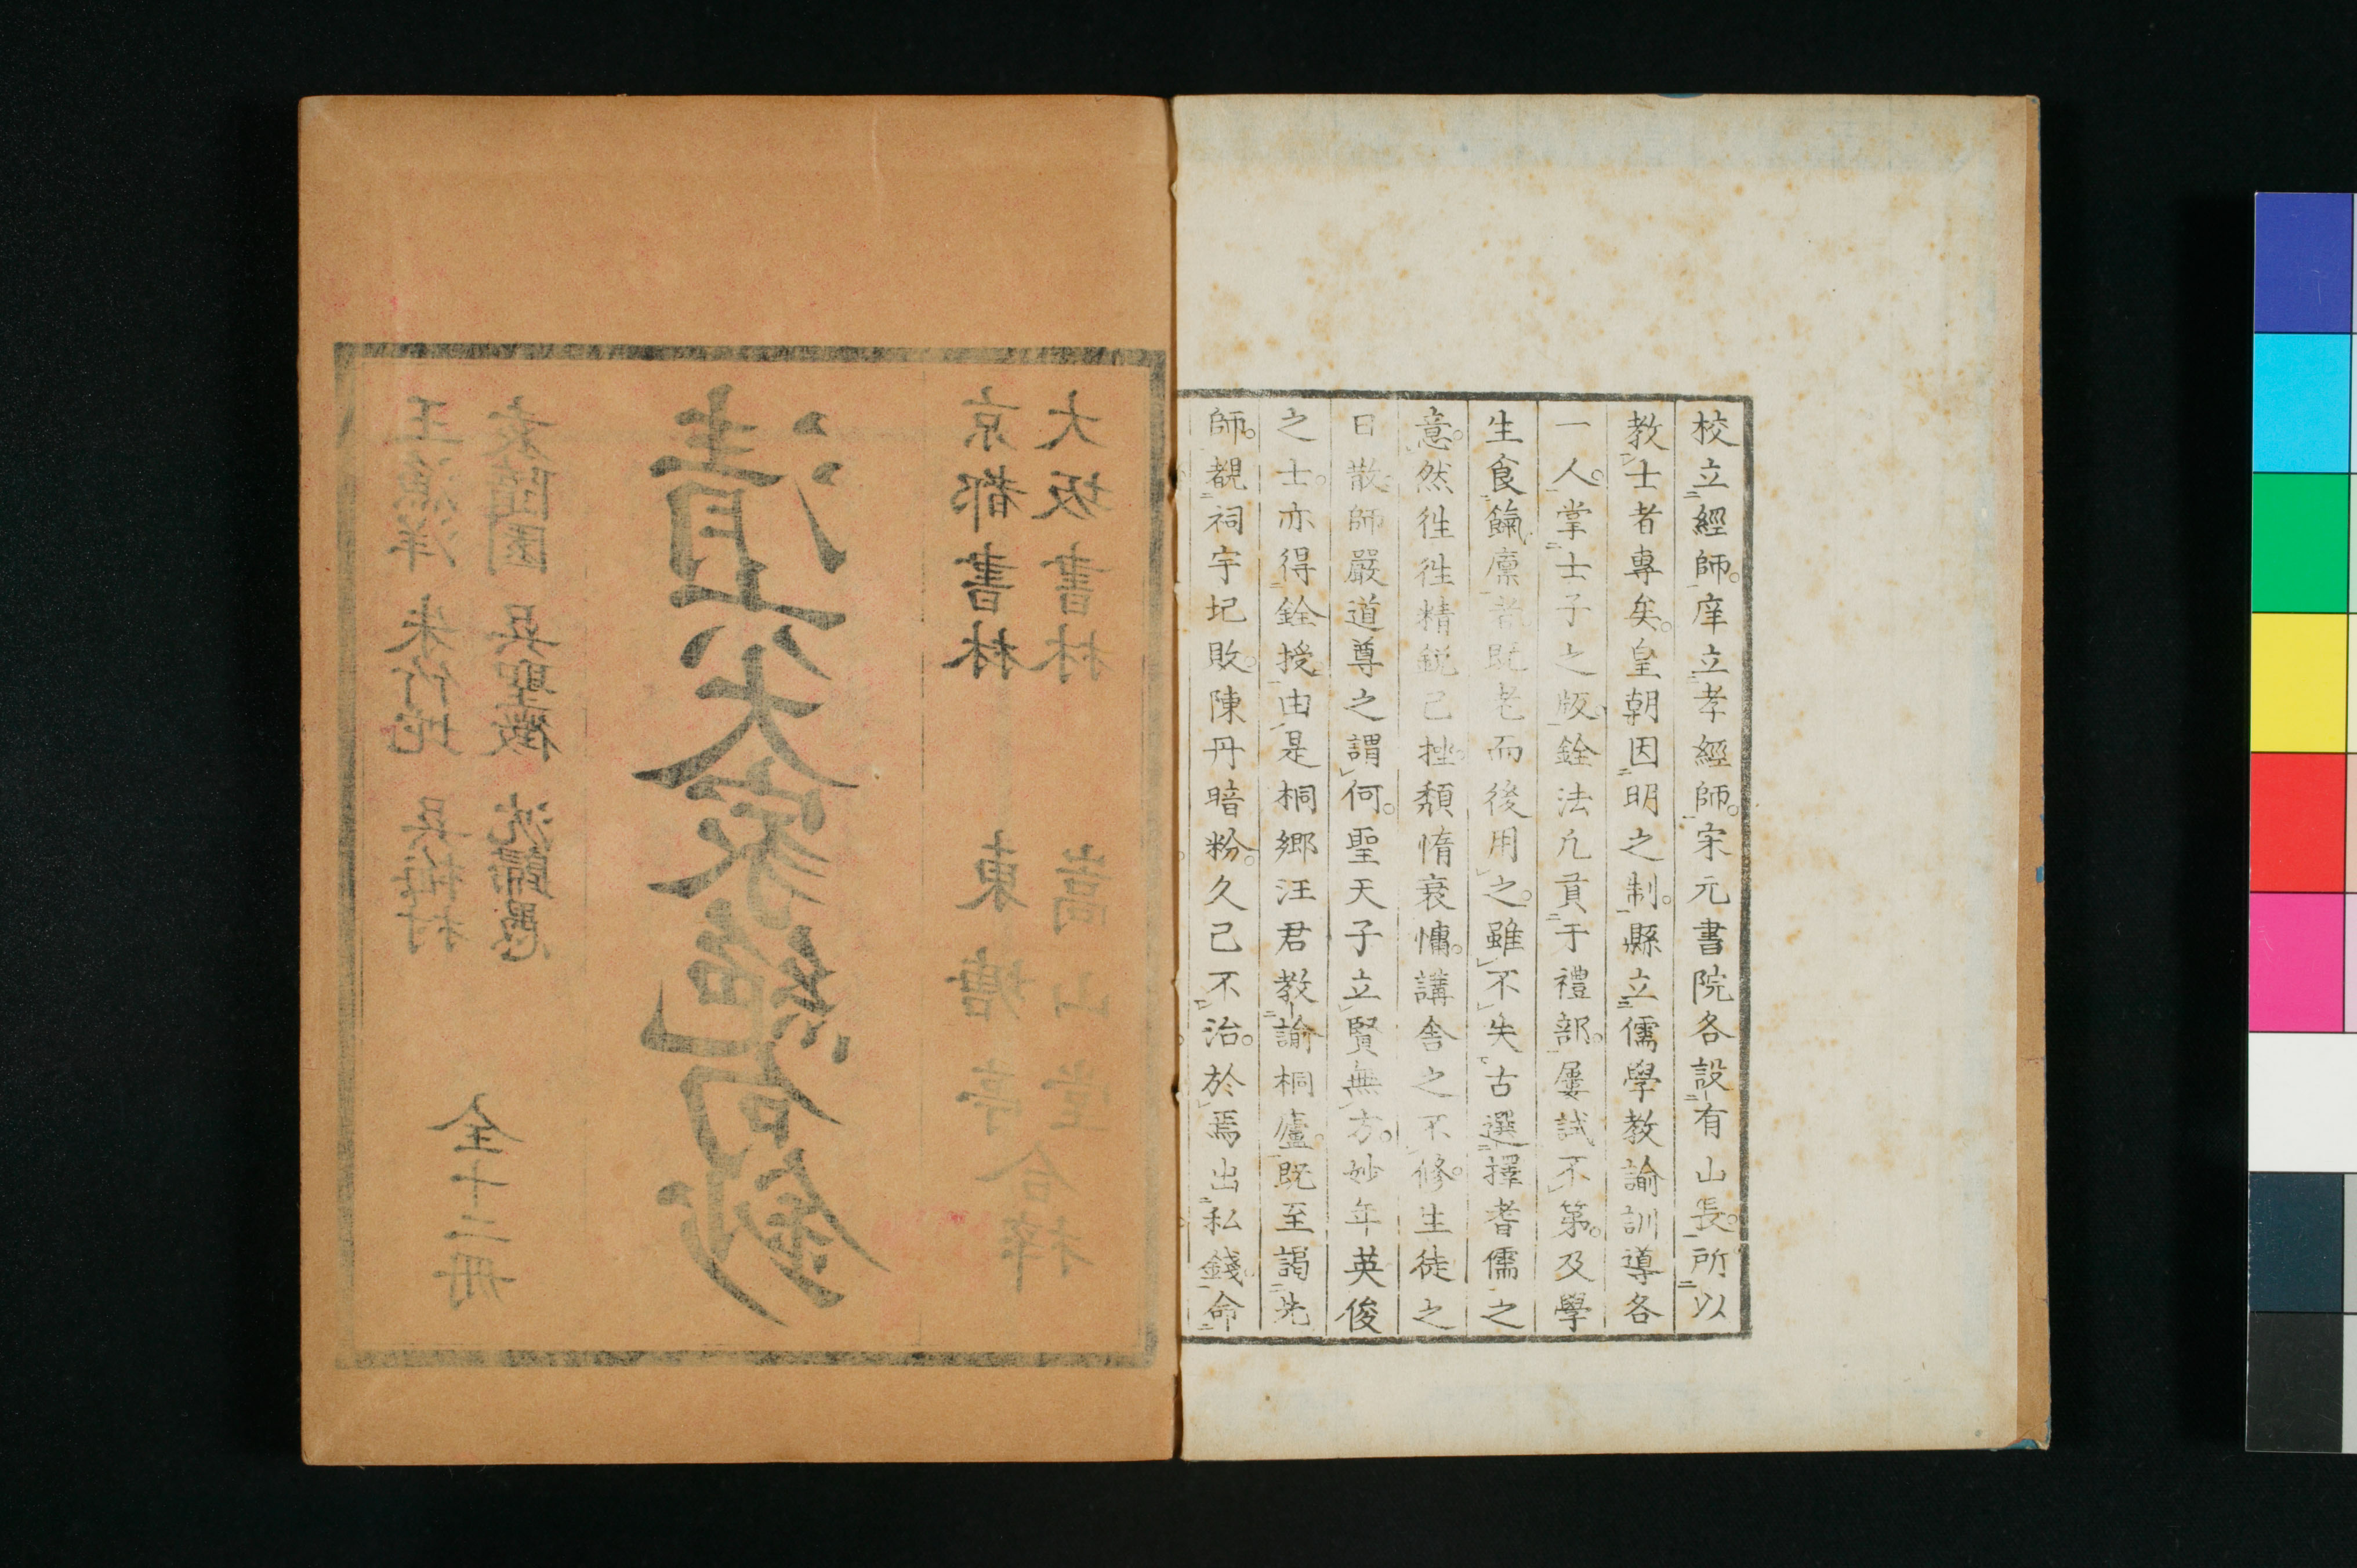 校立經師庠立孝經師宋元書院各設有山長所以
教士者專矣皇朝因明之制縣立儒學教諭訓導各
一人掌士子之版銓法凡貢于禮部屢試不第及學
生食餼廩者既老而後用之雖不失古選擇耆儒之
意然徃徃精鋭已挫頽惰衰慵講舎之不修生徒之
日散師嚴道尊之謂何聖天子立賢無方妙年英俊
之士亦得銓授由是桐郷汪君教諭桐廬既至謁先
師覩祠宇圮敗陳丹暗粉久已不治於焉出私錢命
大坂書林 嵩山堂
京都書林 東塘亭 合梓
清六大家絶句鈔
袁隨園 吳聖徵 沈歸愚
王漁洋 朱竹垞 吳梅村
全十二冊